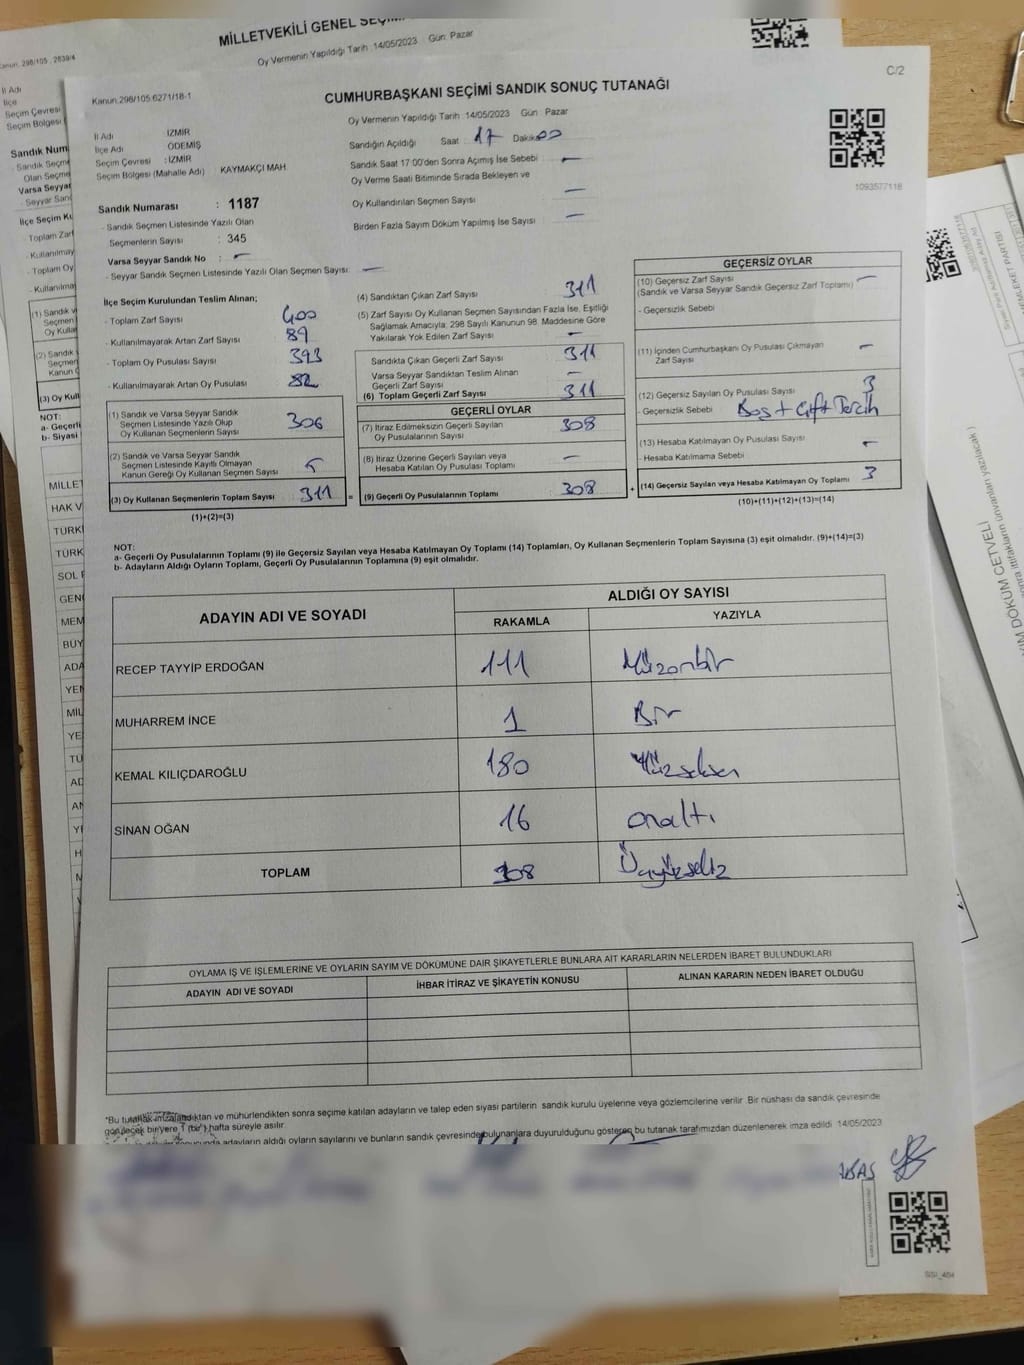 MİLLETVEKİLİ GENEL
Oy Vermenin Yapıldığı Tarih 14/05/2023 Gün: Pazar
C/2
Kanun.298/105.6271/18-1
CUMHURBAŞKANI SEÇİMİ SANDIK SONUÇ TUTANAĞI
Oy Vermenin Yapıldığı Tarih 14/05/2023 Gün Pazar
İl Adı : İZMİR
İlçe Adı ÖDEMİŞ
Seçim Çevresi : İZMİR
Seçim Bölgesi (Mahalle Adı) : KAYMAKÇI MAH
Sandığın Açıldığı Saat : 17 Dakika 00
Sandık Saat 17:00'den Sonra Açımış İse Sebebi –
Oy Verme Saati Bitiminde Sırada Bekleyen ve
Oy Kullandırılan Seçmen Sayısı –
Birden Fazla Sayım Döküm Yapılmış İse Sayısı –
1093577118
Sandık Numarası : 1187
- Sandık Seçmen Listesinde Yazılı Olan
Seçmenlerin Sayısı : 345
Varsa Seyyar Sandık No : –
- Seyyar Sandık Seçmen Listesinde Yazılı Olan Seçmen Sayısı: –
İlçe Seçim Kurulundan Teslim Alınan;
- Toplam Zarf Sayısı 400
- Kullanılmayarak Artan Zarf Sayısı 89
- Toplam Oy Pusulası Sayısı 393
- Kullanılmayarak Artan Oy Pusulası 82
(1) Sandık ve Varsa Seyyar Sandık
Seçmen Listesinde Yazılı Olup
Oy Kullanan Seçmenlerin Sayısı 306
(2) Sandık ve Varsa Seyyar Sandık
Seçmen Listesinde Kayıtlı Olmayan
Kanun Gereği Oy Kullanan Seçmen Sayısı 5
(3) Oy Kullanan Seçmenlerin Toplam Sayısı : 311 =
(1)+(2)=(3)
(4) Sandıktan Çıkan Zarf Sayısı 311
(5) Zarf Sayısı Oy Kullanan Seçmen Sayısından Fazla İse, Eşitliği
Sağlamak Amacıyla; 298 Sayılı Kanunun 98. Maddesine Göre
Yakılarak Yok Edilen Zarf Sayısı –
Sandıkta Çıkan Geçerli Zarf Sayısı 311
Varsa Seyyar Sandıktan Teslim Alınan
Geçerli Zarf Sayısı –
(6) Toplam Geçerli Zarf Sayısı 311
GEÇERLİ OYLAR
(7) İtiraz Edilmeksizin Geçerli Sayılan
Oy Pusulalarının Sayısı 308
(8) İtiraz Üzerine Geçerli Sayılan veya
Hesaba Katılan Oy Pusulası Toplamı –
(9) Geçerli Oy Pusulalarının Toplamı 308 +
GEÇERSİZ OYLAR
(10) Geçersiz Zarf Sayısı –
(Sandık ve Varsa Seyyar Sandık Geçersiz Zarf Toplamı)
- Geçersizlik Sebebi
(11) İçinden Cumhurbaşkanı Oy Pusulası Çıkmayan
Zarf Sayısı –
(12) Geçersiz Sayılan Oy Pusulası Sayısı 3
- Geçersizlik Sebebi Boş + Çift Tercih
(13) Hesaba Katılmayan Oy Pusulası Sayısı –
- Hesaba Katılmama Sebebi
(14) Geçersiz Sayılan veya Hesaba Katılmayan Oy Toplamı 3
(10)+(11)+(12)+(13)=(14)
NOT:
a- Geçerli Oy Pusulalarının Toplamı (9) ile Geçersiz Sayılan veya Hesaba Katılmayan Oy Toplamı (14) Toplamları, Oy Kullanan Seçmenlerin Toplam Sayısına (3) eşit olmalıdır. (9)+(14)=(3)
b- Adayların Aldığı Oyların Toplamı, Geçerli Oy Pusulalarının Toplamına (9) eşit olmalıdır.
ADAYIN ADI VE SOYADI
ALDIĞI OY SAYISI
RAKAMLA YAZIYLA
RECEP TAYYİP ERDOĞAN 111 Yüzonbir
MUHARREM İNCE 1 Bir
KEMAL KILIÇDAROĞLU 180 Yüzseksen
SİNAN OĞAN 16 onaltı
TOPLAM 308 Üçyüzsekiz
OYLAMA İŞ VE İŞLEMLERİNE VE OYLARIN SAYIM VE DÖKÜMÜNE DAİR ŞİKAYETLERLE BUNLARA AİT KARARLARIN NELERDEN İBARET BULUNDUKLARI
ADAYIN ADI VE SOYADI
İHBAR İTİRAZ VE ŞİKAYETİN KONUSU
ALINAN KARARIN NEDEN İBARET OLDUĞU
*Bu tutanak imzalandıktan ve mühürlendikten sonra seçime katılan adayların ve talep eden siyasi partilerin sandık kurulu üyelerine veya gözlemcilerine verilir. Bir nüshası da sandık çevresinde
görülecek bir yere 1 (bir) hafta süreyle asılır.
adayların aldığı oyların sayılarını ve bunların sandık çevresinde bulunanlara duyurulduğunu gösteren bu tutanak tarafımızdan düzenlenerek imza edildi 14/05/2023